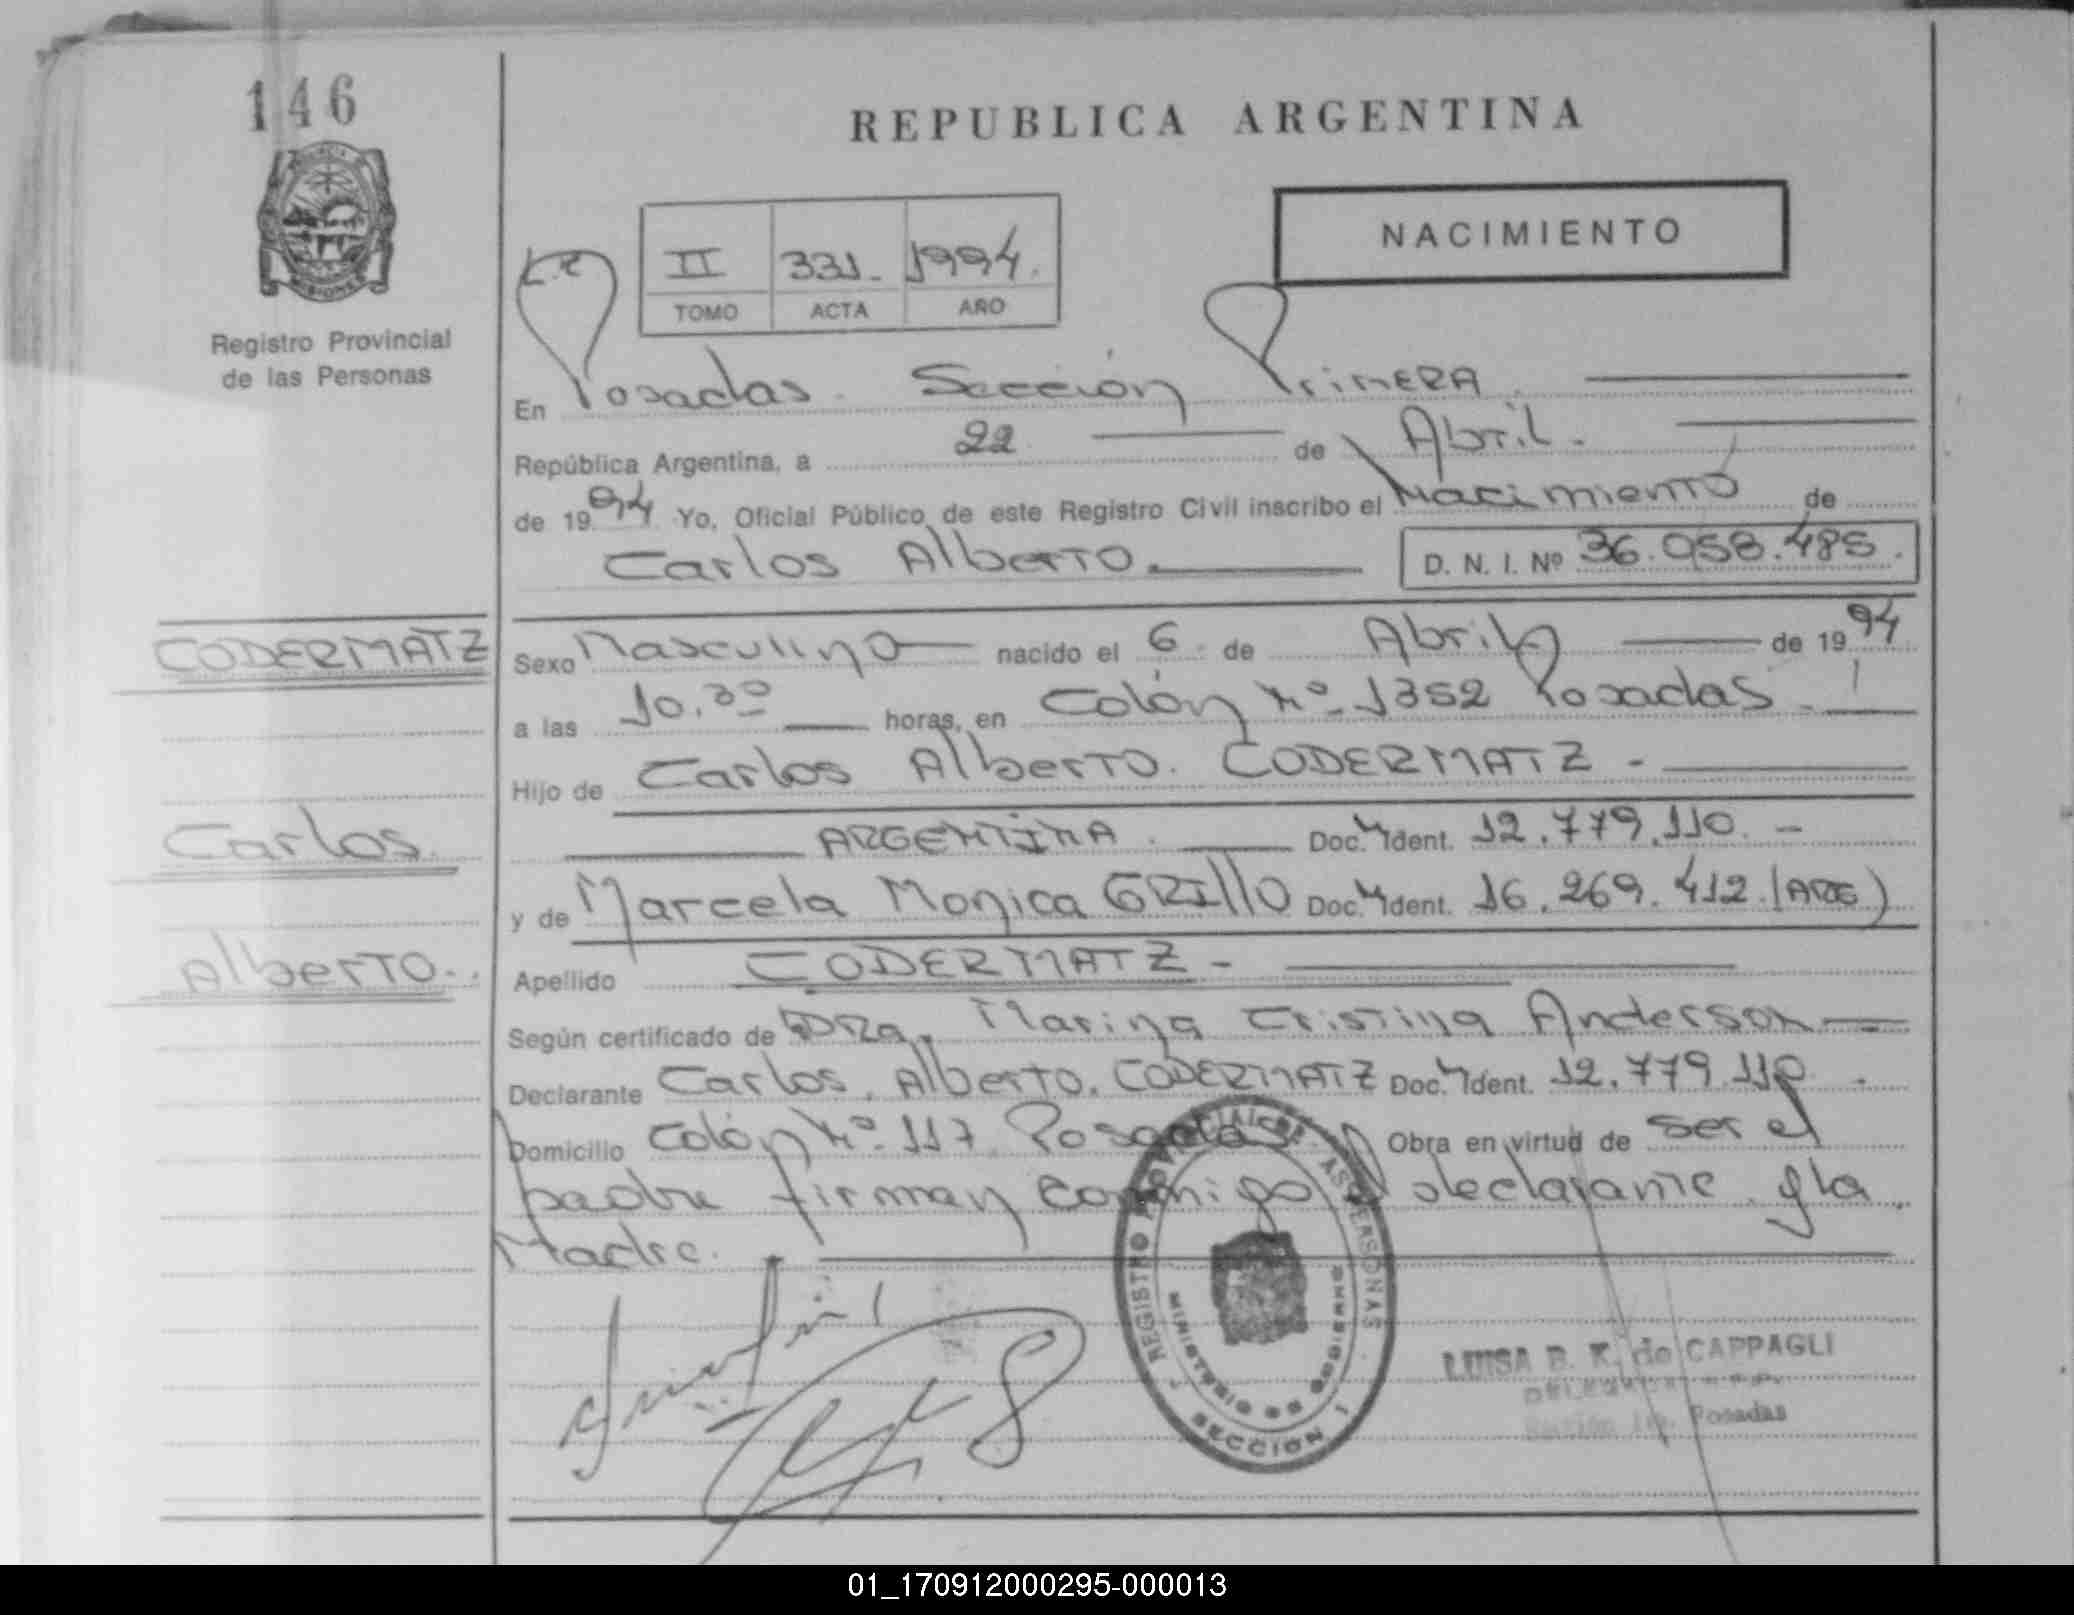 146
REPUBLICA ARGENTINA
NACIMIENTO
II 331. 1994.
TOMO ACTA AÑO
MISIONES
Registro Provincial
de las Personas
En Posadas. Sección Primera.
República Argentina, a 22 de Abril.
de 1994 Yo, Oficial Público de este Registro Civil inscribo el Nacimiento de
Carlos Alberto. D. N. I. Nº 36.058.485.
CODERMATZ
Sexo Masculino nacido el 6 de Abril de 1994
a las 10.30 horas, en Colón Nº 1352 Posadas.
Hijo de Carlos Alberto. CODERMATZ -
Carlos
ARGENTINA. Doc. Ident. 12.779.110. -
y de Marcela Monica GRIllO Doc. Ident. 16.269.412. (ARG)
Alberto..
Apellido CODERMATZ -
Según certificado de DRa. Marina Cristina Anderson
Declarante Carlos. Alberto. CODERMATZ Doc. Ident. 12.779.110.
Domicilio Colón Nº 117 Posadas Obra en virtud de ser el
padre firman conmigo declarante y la
Madre.
REGISTRO PROVINCIAL DE LAS PERSONAS
MINISTERIO DE GOBIERNO
SECCION 1
LUISA B. K. de CAPPAGLI
Sección 1a. Posadas
01_170912000295-000013